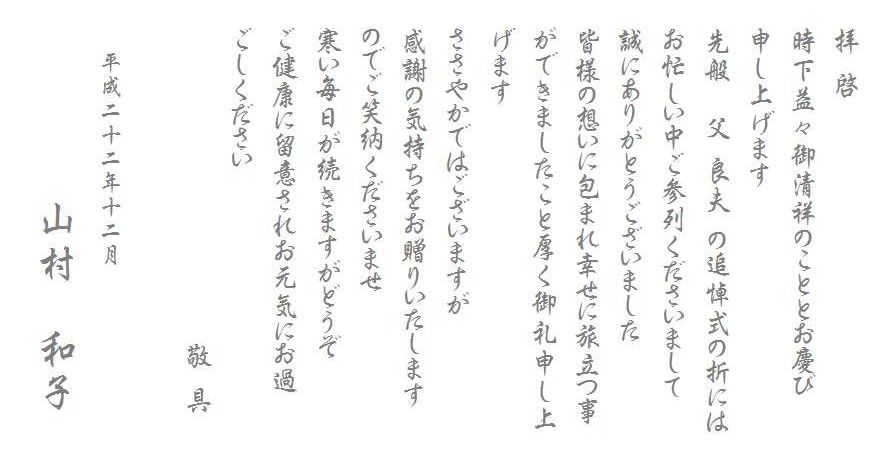 拝啓
時下益々御清祥のこととお慶び
申し上げます
先般 父 良夫 の追悼式の折には
お忙しい中ご参列くださいまして
誠にありがとうございました
皆様の想いに包まれ幸せに旅立つ事
ができましたこと厚く御礼申し上
げます
ささやかではございますが
感謝の気持ちをお贈りいたします
のでご笑納くださいませ
寒い毎日が続きますがどうぞ
ご健康に留意されお元気にお過
ごしください
敬具
平成二十二年十二月
山村 和子